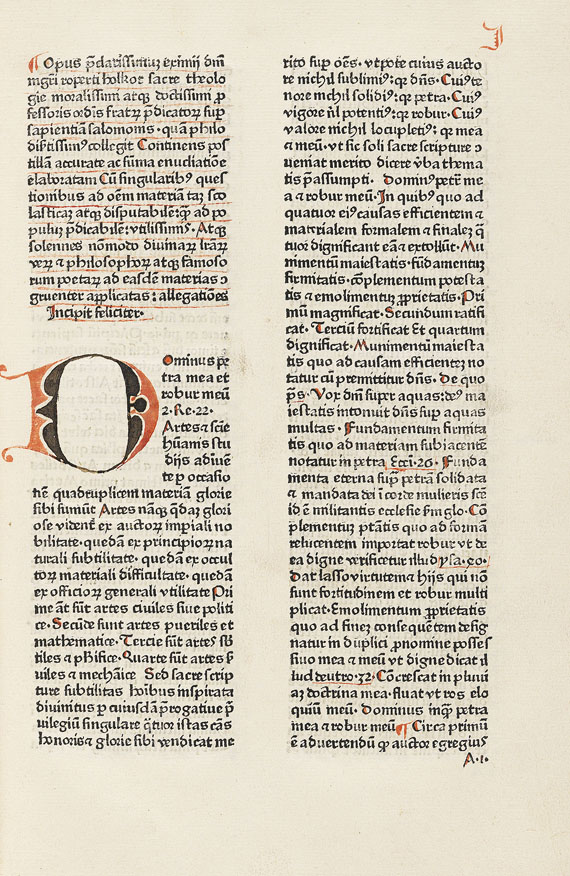 I
¶ Opus p̄clarissimū eximij dm̄
mgr̄i roperti holkot sacre theolo
gie moralissimi atqꝫ doctissimi ꝓ
fessoris ordīs fratꝝ p̄dicatoꝝ suꝑ
sapientiā salomonis · quā philo
Continens pos
tillā accurate ac sūma enucliatiōe
elaboratam Cū singularibꝰ ques
tionibus ad oēm materiā tā sco
lasticaꝫ atqꝫ disputabilē: qꝫ ad po
pulū p̄dicabilē: vtilissimis · Atqꝫ
solennes nōmodo diuinaꝝ lr̄aꝝ
verꝫ ꞇ philosophoꝝ atqꝫ famoso
rum poetaꝝ ad easdē materias ↄ
gruenter applicatas : allegatiōes
Incipit feliciter ·
Dominus pe
tra mea et
robur meū
2 · Re · 22 ·
Artes ꞇ sciē
tie hūanis stu
dijs adiuē
te ꝑ occasio
nē quadruplicem materiā glorie
sibi sumūt Artes nāqꝫ q̄daꝫ glori
ose vident̄ ex auctoꝝ imperiali no
bilitate · quedā ex principioꝝ na
turali subtilitate · quedā ex occul
toꝝ materiali difficultate · quedā
ex officioꝝ generali vtilitate Pri
me āt sūt artes ciuiles siue politi
ce · Secūde sunt artes pueriles et
mathematice · Tercie sūt artes sb̄
tiles ꞇ phisice · Quarte sūt artes s̄
uiles ꞇ mechāice Sed sacre scrip
ture subtilitas hoībus inspirata
diuinitus ꝑ cuiusdā prerogatiue p̄
uilegiū singulare q̄tuor istas cās
honoris ꞇ glorie sibi vendicat me
rito suꝑ oēs · vtpote cuius aucto
re nichil sublimiꝰ: qꝫ dn̄s · Cuiꝰ te
nore nichil solidiꝰ: qꝫ petra · Cuiꝰ
vigore nil potentiꝰ: qꝫ robur · Cuiꝰ
valore nichil locupletiꝰ: qꝫ mea
ꞇ meū · vt sic soli sacre scripture ↄ
ueniat merito dicere v̄ba thema
tis p̄assumpti · Dominꝰ petra me
a ꞇ robur meū · In quibꝰ quo ad
quatuor eiꝰ causas efficientem ꞇ
materialem formalem ꞇ finaleꝫ q̄
tuor dignificant eā ꞇ extollūt · Mu
nimentū maiestatis · fūdamentuꝫ
firmitatis · cōplementum potesta
tis ꞇ emolimentuꝫ ꝓprietatis · Pri
mū magnificat · Secundum ratifi
cat · Terciū fortificat Et quartum
dignificat · Munimentū maiesta
tis quo ad causam efficienteꝫ no
tatur cū premittitur dn̄s · de quo
ps̄ · Vox dn̄i super aquas: deꝰ ma
iestatis intonuit dn̄s suꝑ aquas
multas · Fundamentum firmita
tis quo ad materiam subiacentē
notatur in petra Ecci · 26 · Funda
menta eterna supra petrā solidata
ꞇ mandata dei ī corde mulieris scē
id ē militantis ecclesie km̄ glo · Cō
plementuꝫ ptātis quo ad formā
relucentem importat robur vt de
ea digne verificetur illud ysa · 40 ·
Dat lasso virtutem ꞇ hijs qui nō
sunt fortitudinem et robur multi
plicat · Emolimentum ꝓprietatis
quo ad fineꝫ conseque tem desig
natur in duplici ꝓnomine posses
siuo mea ꞇ meū vt digne dicat il
lud deutro · 32 · Cōcrescat in pluui
aꝫ doctrina mea · fluat vt ros elo
quiū meū · Dominus inqꝫ petra
mea ꞇ robur meū ¶ Circa primū
ē aduertendū ꝙ auctor egregius
A · 1 ·